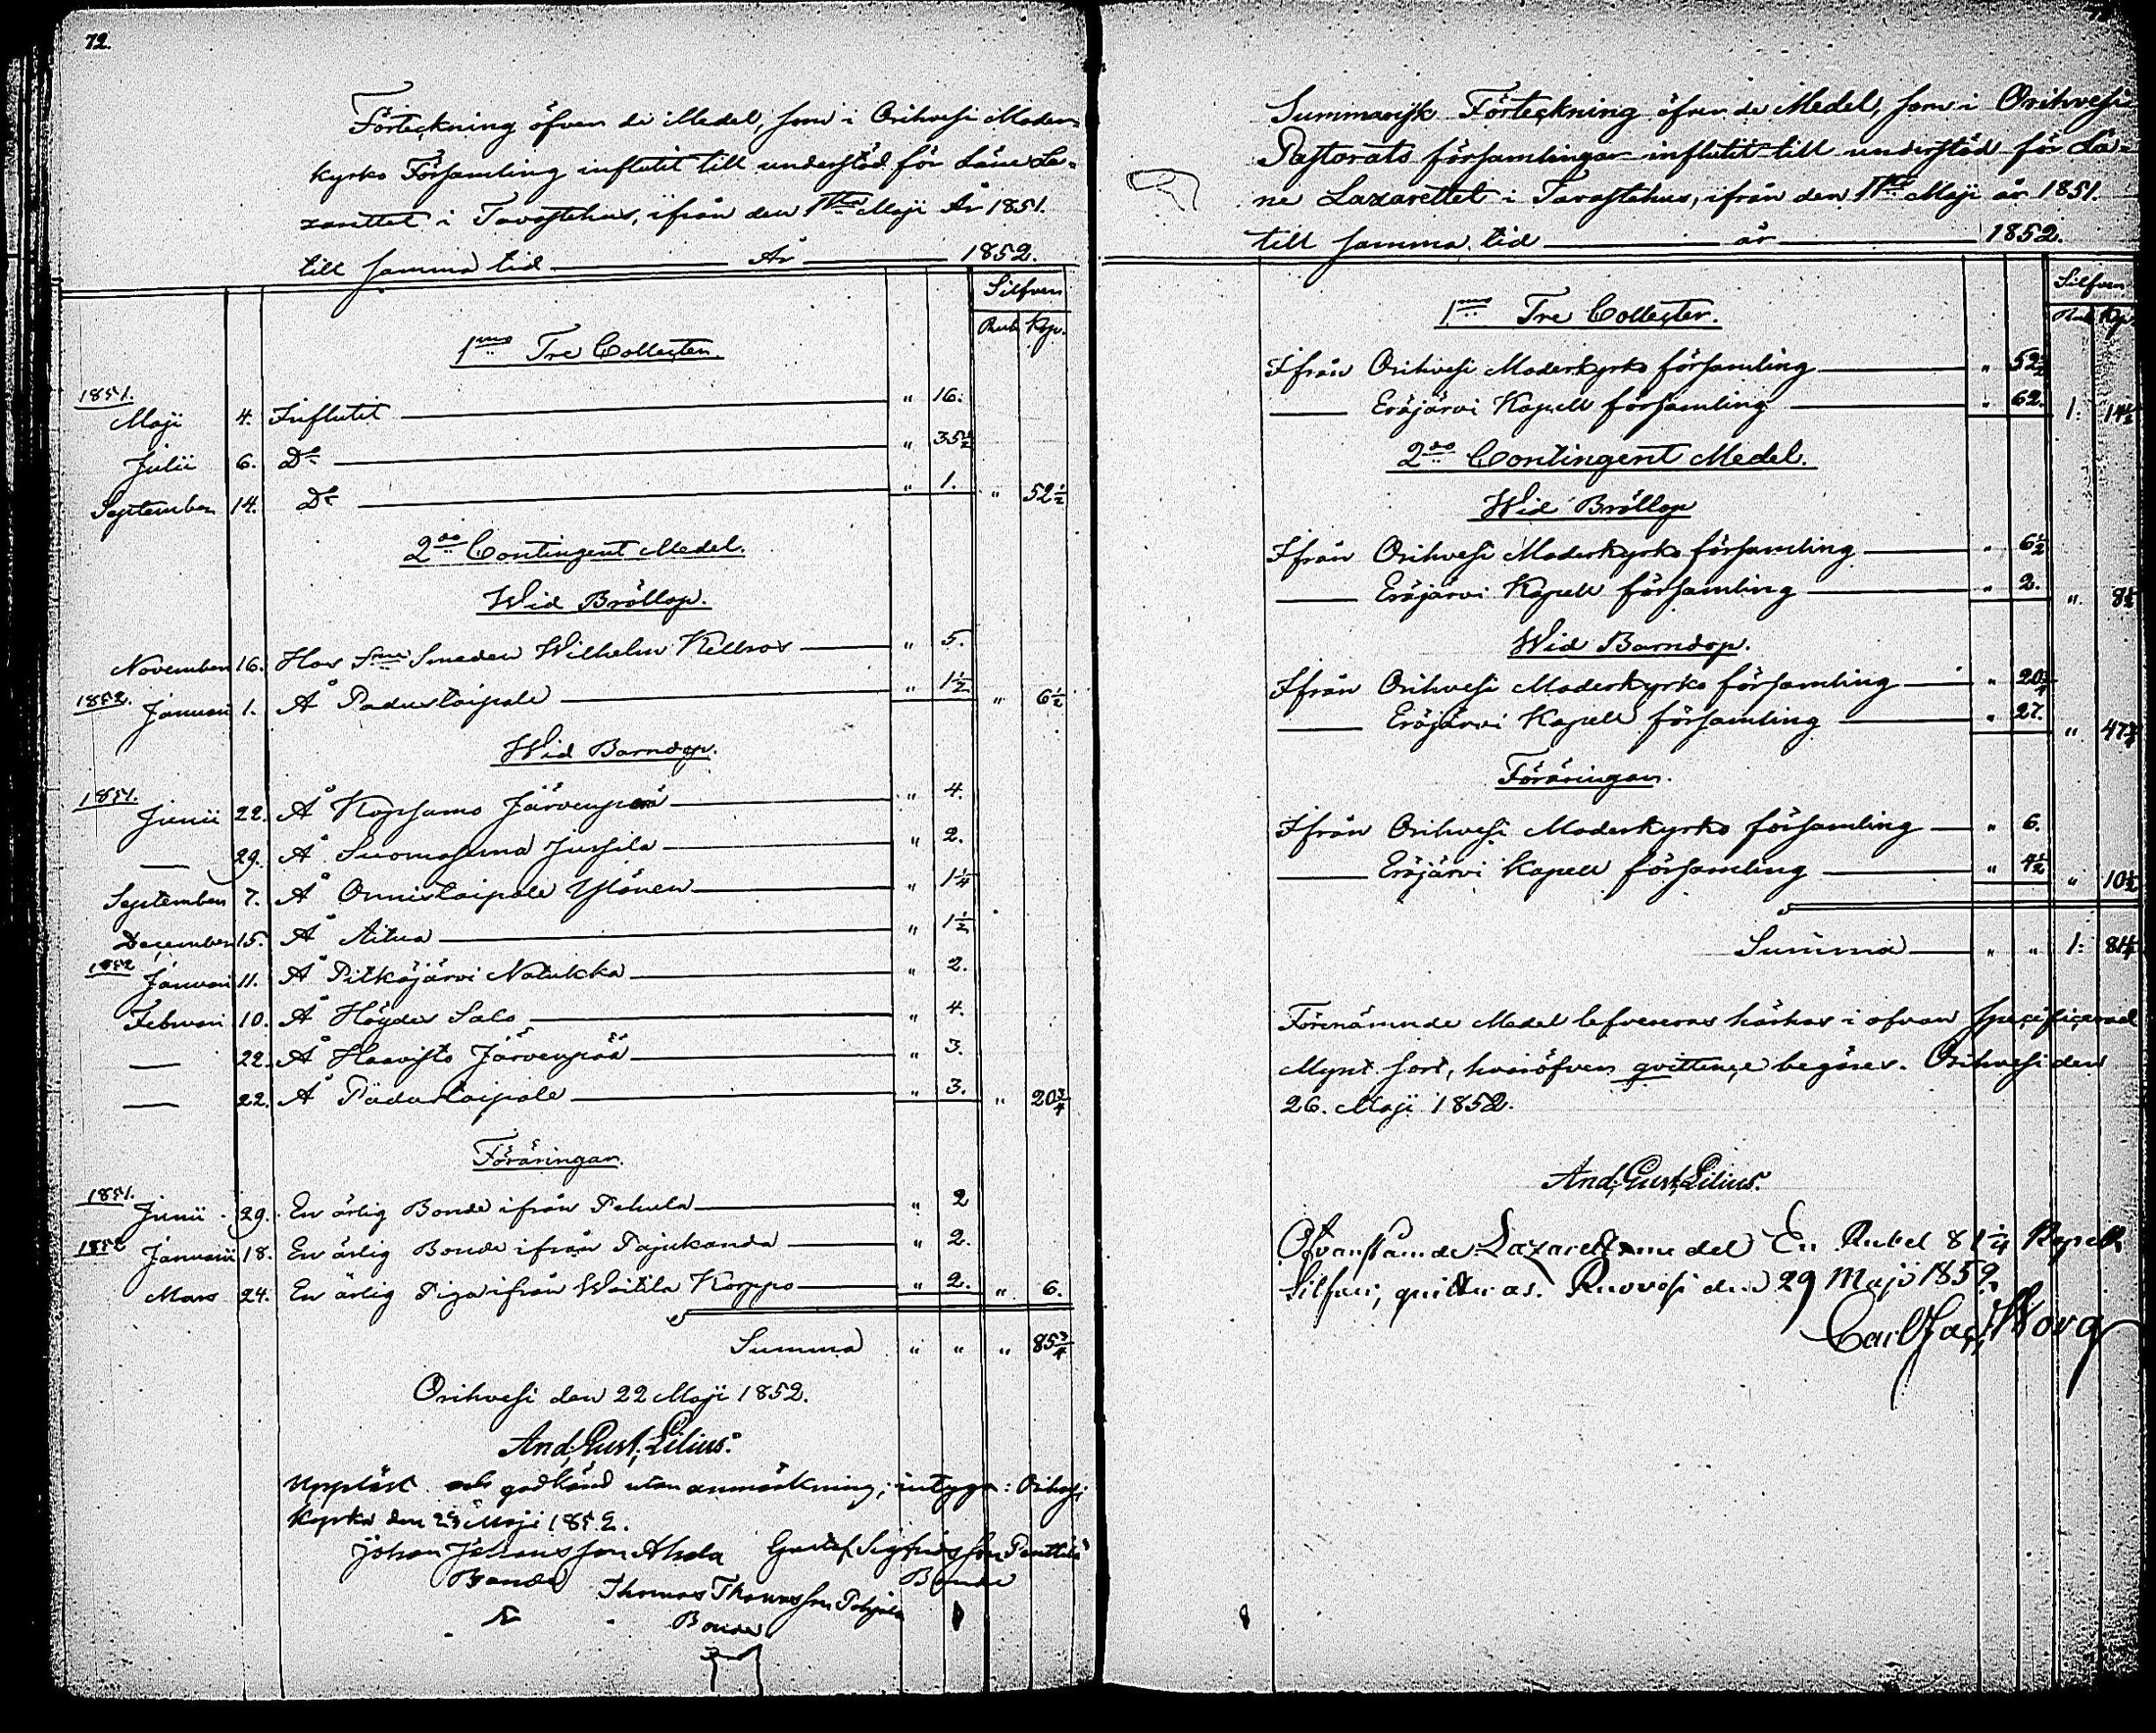 72.
Förteckning öfver de Medel, som i Orihvesi Moder-
kyrko Församling influtit till understöd för Läne La-
zarettet i Tavastehus, ifrån den 1sta Maji År 1851.
till samma tid ——— År ——— 1852.
Silfver
Rub. Kop.
1mo Tre Collecter.
1851.
Maji 4. Influtit — " 16.
Julii 6. Do — " 35½
September 14. Do — " 1. " 52½
2do Contingent Medel.
Wid Bröllop.
November 16. Hos Smeden Wilhelm Kellros — " 5.
1852.
Januari 1. Å Padustaipale — " 1½ " 6½
Wid Barndop.
1851.
Junii 22. Å Kopsamo Järvenpää — " 4.
— 29. Å Suomasema Jussila — " 2.
September 7. Å Onnistaipale Ylönen — " 1¼
December 15. Å Aitua — " 1½
1852
Januari 11. Å Pitkäjärvi Natukka — " 2.
Februari 10. Å Höyder Salo — " 4.
— 22. Å Haavisto Järvenpää — " 3.
— 22. Å Padustaipale — " 3. " 20¾
Föräringar.
1851.
Junii 29. En ärlig Bonde ifrån Pehula — " 2
1852
Januarii 18. En ärlig Bonde ifrån Pajukanda — " 2.
Mars 24. En ärlig Piga ifrån Waitila Korppo — " 2. " 6.
Summa " " " 85¾
Orihvesi den 22 Maji 1852.
And. Gust. Lilius.
Uppläst och godkänd utan anmärkning; intyga: Orihvesi
Kyrka den 23 Maji 1852.
Johan Johansson Ahola Gustaf Sigfridsson Penttilä
Bonde Bonde
Thomas Thomasson Pohjola
Bonde
Summarisk Förteckning öfver de Medel, som i Orihvesi
Pastorats församlingar influtit till understöd för Lä-
ne Lazarettet i Tavastehus, ifrån den 1sta Maji år 1851.
till samma tid ——— år ——— 1852.
Silfver
Rub. Kop.
1mo Tre Collecter.
Ifrån Orihvesi Moderkyrko församling — " 52½
— Eräjärvi Kapell församling — " 62. 1: 14½
2do Contingent Medel.
Wid Bröllop
Ifrån Orihvesi Moderkyrko församling — " 6½
— Eräjärvi Kapell församling — " 2. " 8½
Wid Barndop.
Ifrån Orihvesi Moderkyrko församling — " 20¾
— Eräjärvi Kapell församling — " 27. " 47¾
Föräringar.
Ifrån Orihvesi Moderkyrko församling — " 6.
— Eräjärvi Kapell församling — " 4½ " 10½
Summa — " " 1: 81¼
Förenämnde Medel lefvereras härhos i ofvan specificerad
Mynt sort, hvaröfver qvittence begäres. Orihvesi den
26. Maji 1852.
And. Gust. Lilius.
Ofvanstående Lazarettsmedel En Rubel 81¼ Kopek
Silfver, quitteras. Ruovesi den 29 Maji 1852.
Carl Jac. Borg